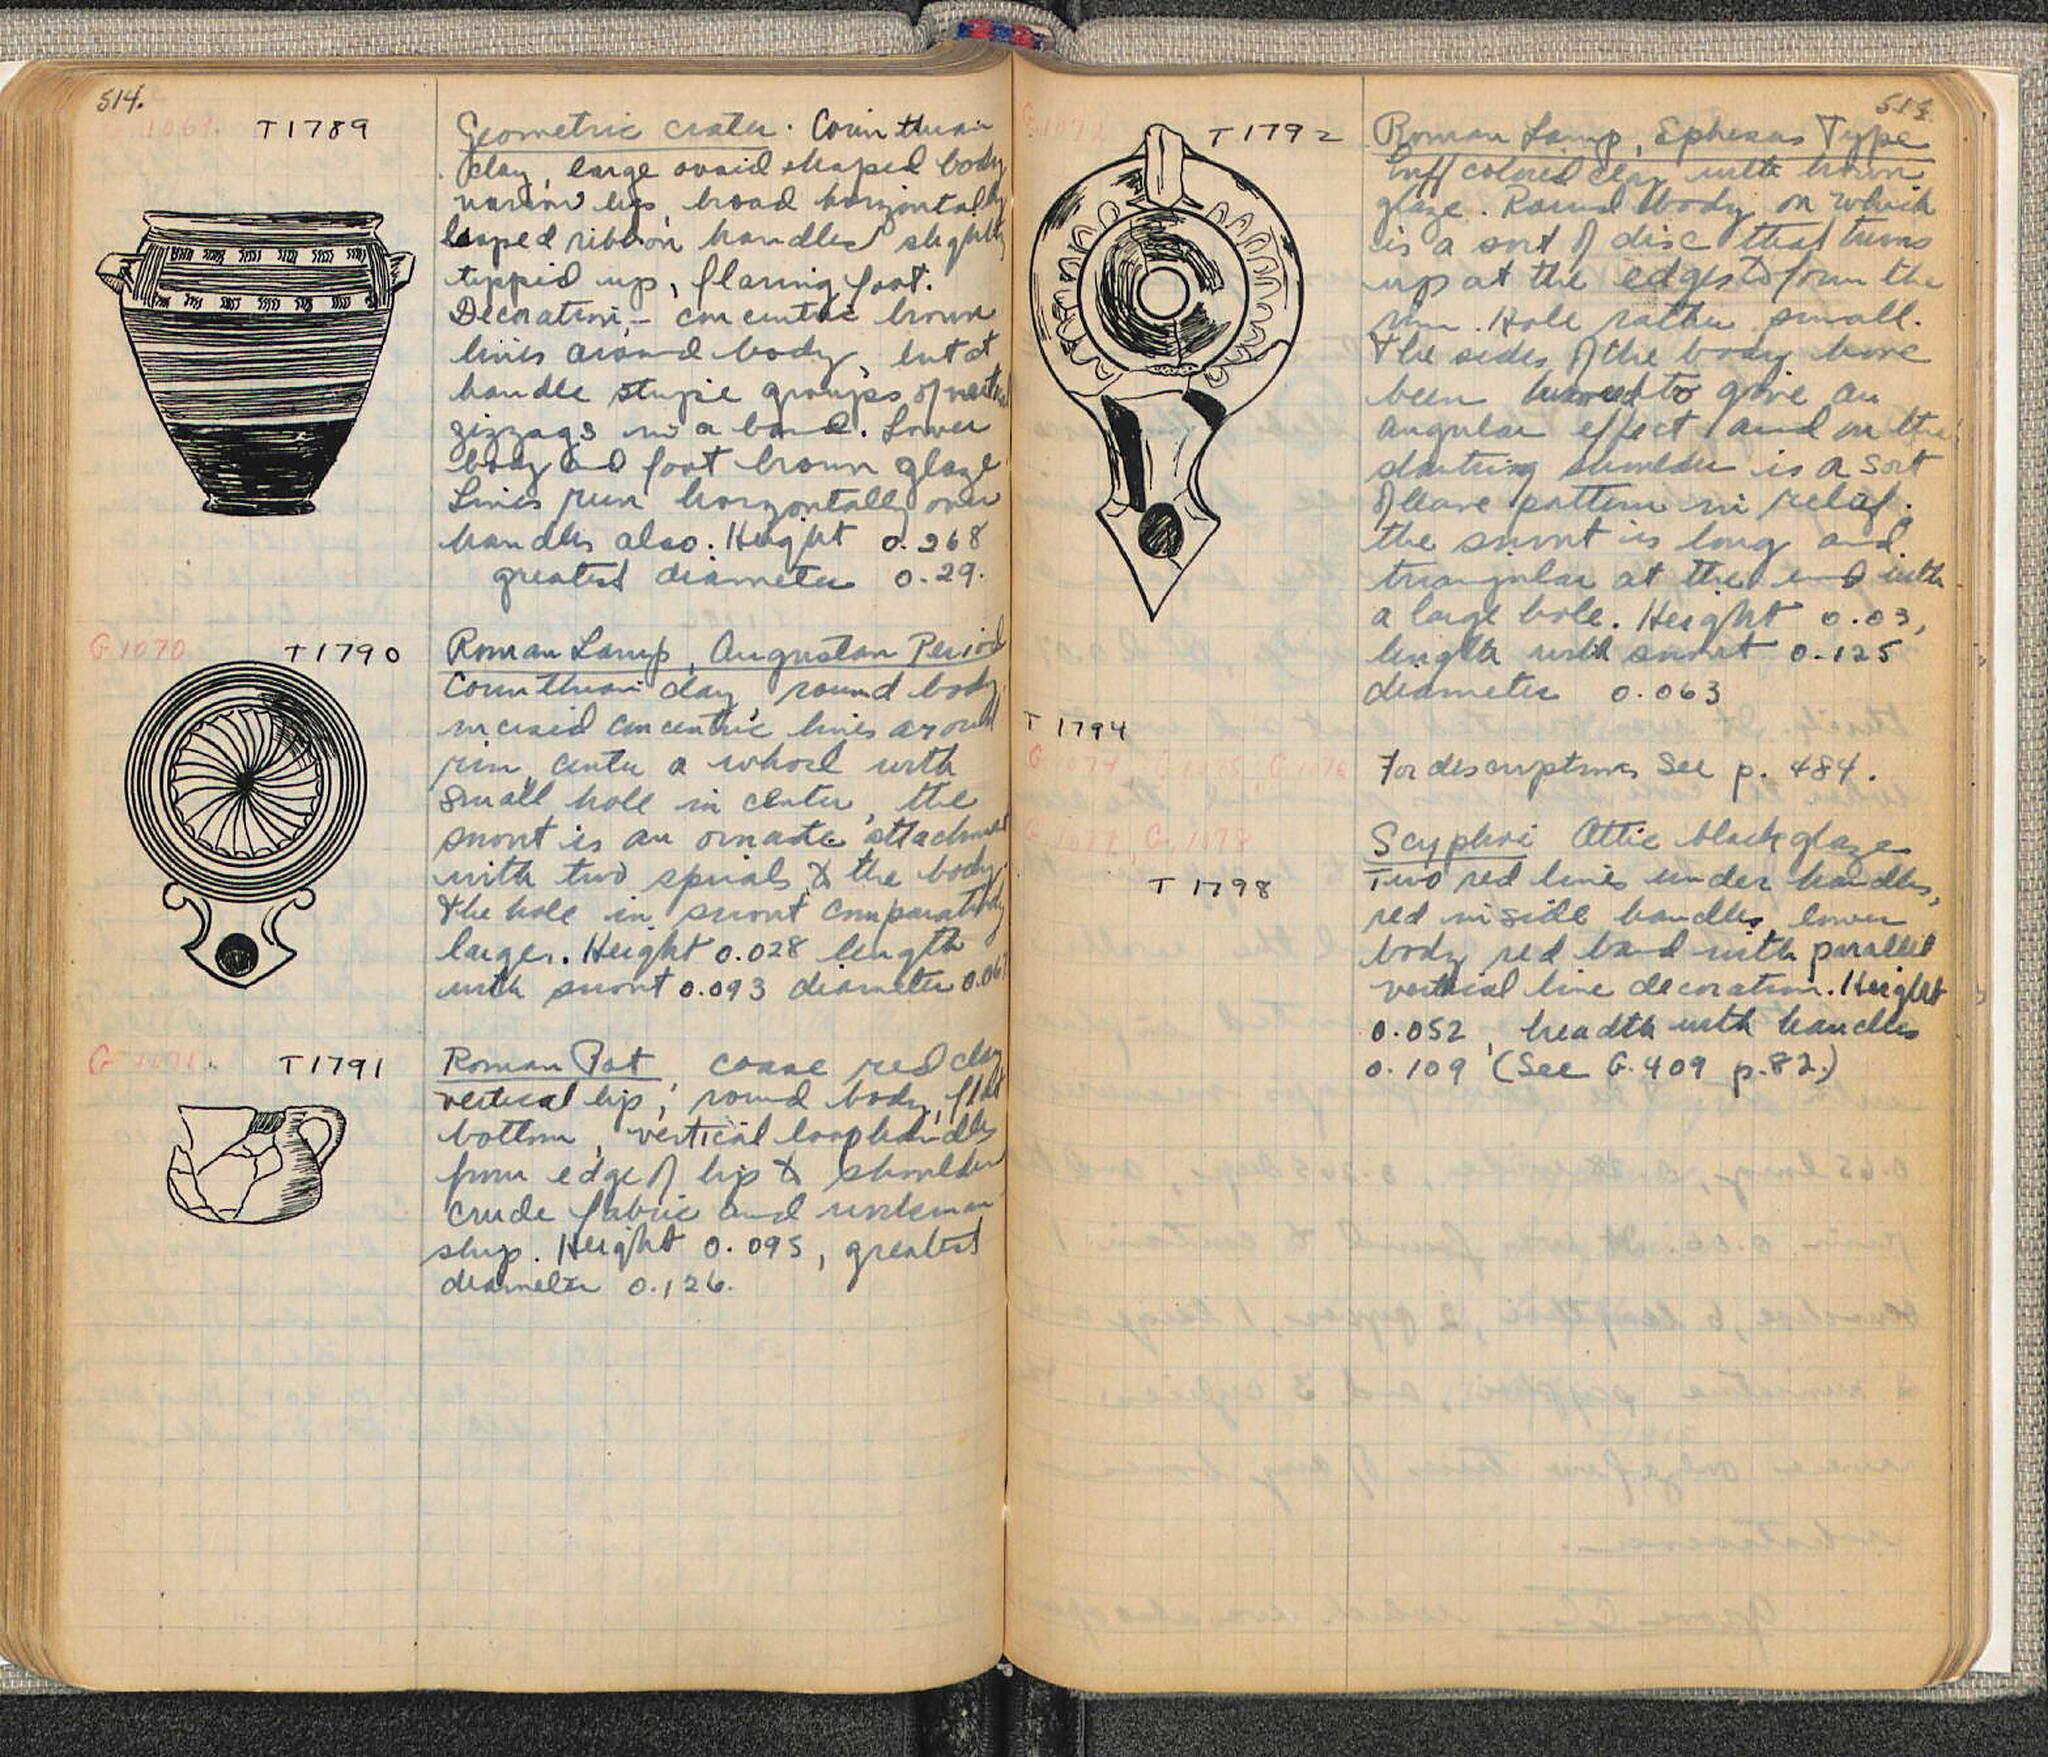 514.
G 1069. T1789
Geometric crater. Corinthian
clay, large ovoid shaped body
narrow lip, broad horizontally
looped ribbon handles slightly
tipped up, flaring foot.
Decoration,- concentric brown
lines around body, but at
handle stripe groups of vertical
zizzags in a band. Lower
body and foot brown glaze
Lines run horizontally over
handles also. Height 0.268
greatest diameter 0.29.
G 1070 T1790
Roman Lamp, Augustan Period
Corinthian clay, round body
incised concentric lines around
rim, center a whorl with
small hole in center, the
snout is an ornate attachment
with two spirals to the body.
The hole in snout comparatively
larger. Height 0.028 length
with snout 0.093 diameter
T1791
Roman Pot, coarse red clay
vertical lip, round body, flat
bottom, vertical loop handles
from edge of lip to shoulder
crude fabric and workman
ship. Height 0.095, greatest
diameter 0.126.
G 1072 T1792
Roman Lamp, Ephesus Type
buff colored clay with brown
glaze. Round body on which
is a sort of disc that turns
up at the edges to form the
rim. Hole rather small.
The sides of the body have
been turned to give an
angular effect and on the
slanting shoulder is a sort
of leave pattern in relief.
the snout is long and
triangular at the end with
a large hole. Height 0.03,
length with snout 0.125
diameter 0.063
T 1794
G 1074, G 1075, G 1076
For descriptions See p. 484.
G 1077, G 1078
T 1798
Scyphoi Attic black glaze
Two red lines under handles,
red inside handles, lower
body red band with parallel
vertical line decoration. Height
0.052, breadth with handles
0.109 (See G. 409 p.82.)